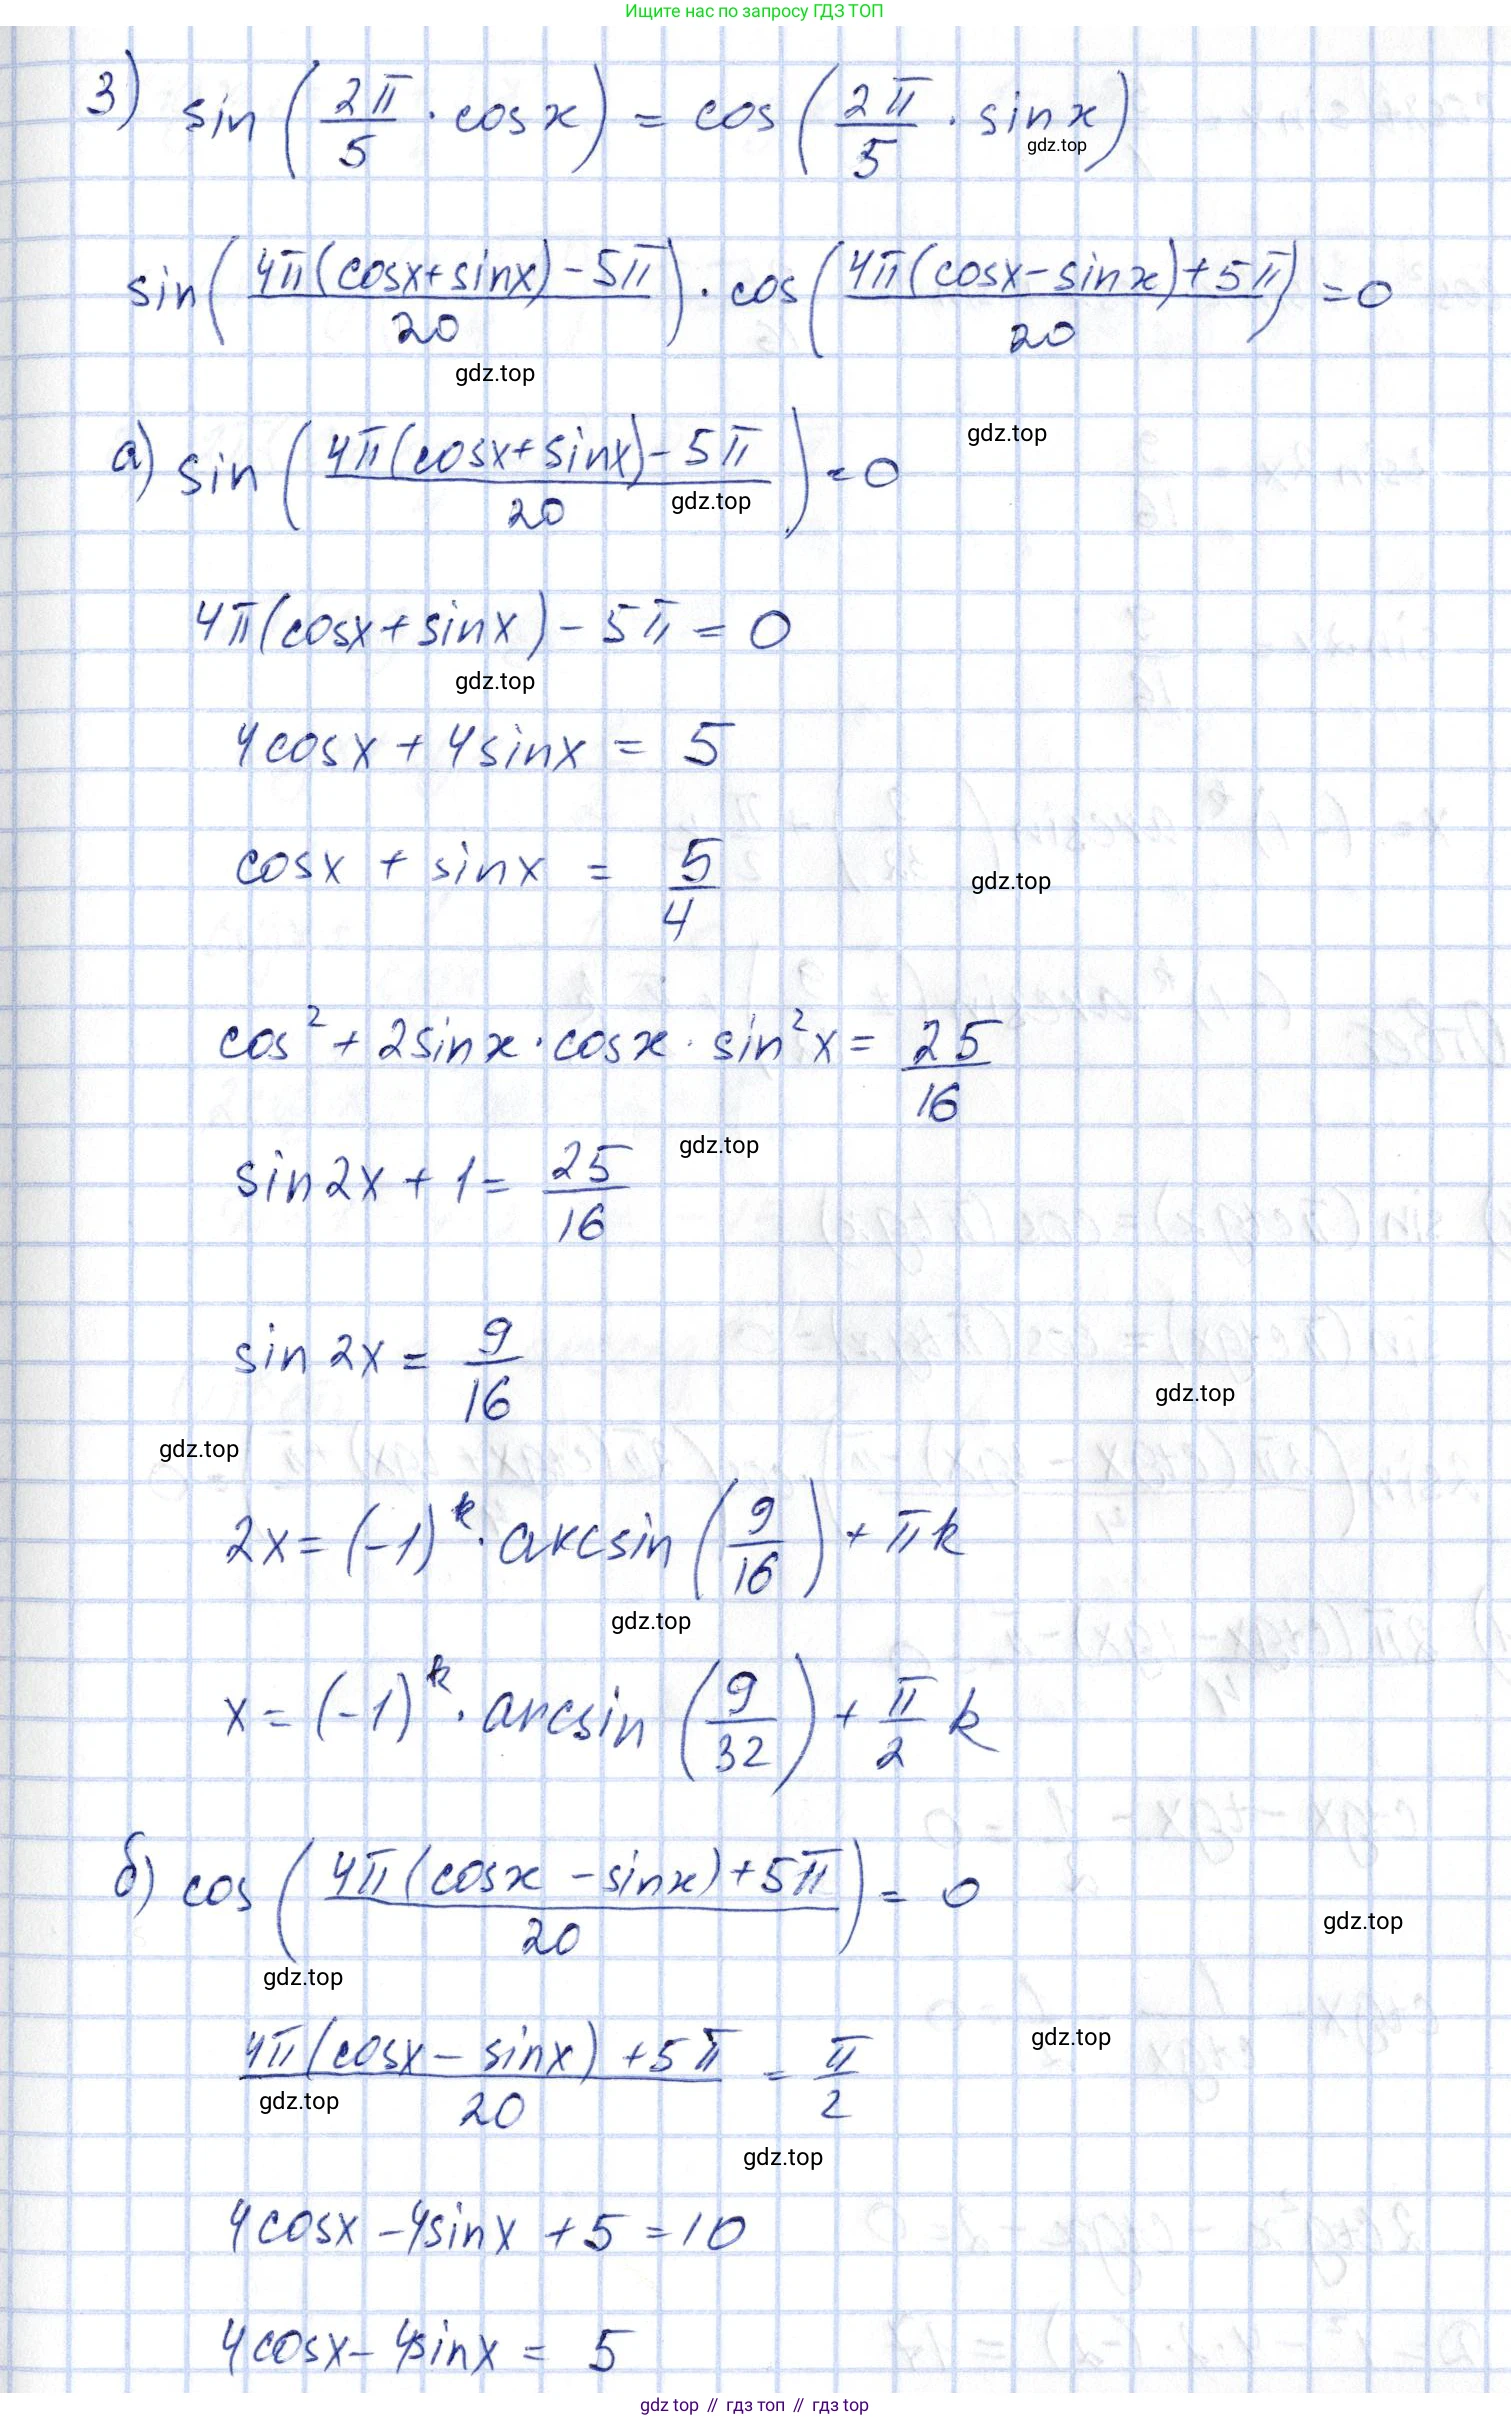 Ищите нас по запросу ГДЗ ТОП
3) sin(2π/5 · cosx) = cos(2π/5 · sinx)
gdz.top
sin((4π(cosx+sinx)-5π)/20) · cos((4π(cosx-sinx)+5π)/20) = 0
gdz.top
gdz.top
а) sin((4π(cosx+sinx)-5π)/20) = 0
gdz.top
4π(cosx+sinx)-5π = 0
gdz.top
4cosx + 4sinx = 5
cosx + sinx = 5/4
gdz.top
cos² + 2sinx · cosx · sin²x = 25/16
gdz.top
sin2x + 1 = 25/16
sin2x = 9/16
gdz.top
gdz.top
2x = (-1)^k · arcsin(9/16) + πk
gdz.top
x = (-1)^k · arcsin(9/32) + π/2 k
б) cos((4π(cosx - sinx)+5π)/20) = 0
gdz.top
gdz.top
(4π(cosx - sinx) + 5π)/20 = π/2
gdz.top
gdz.top
gdz.top
4cosx - 4sinx + 5 = 10
4cosx - 4sinx = 5
gdz top // гдз топ // гдз top